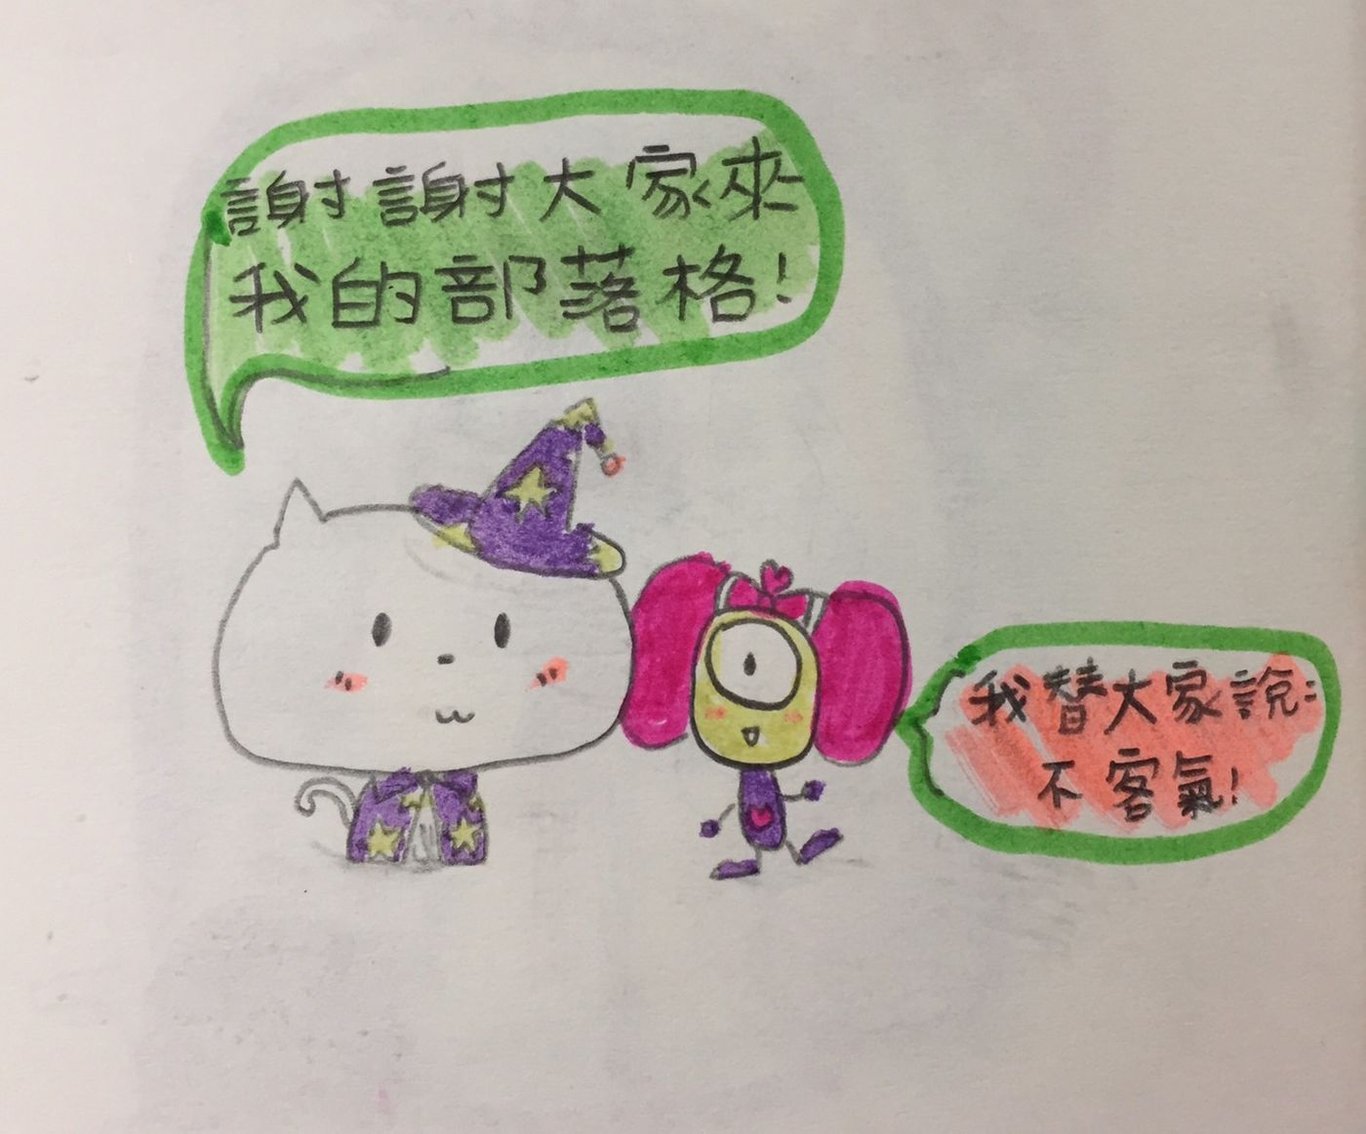 謝謝大家來
我的部落格!
我替大家說:
不客氣!